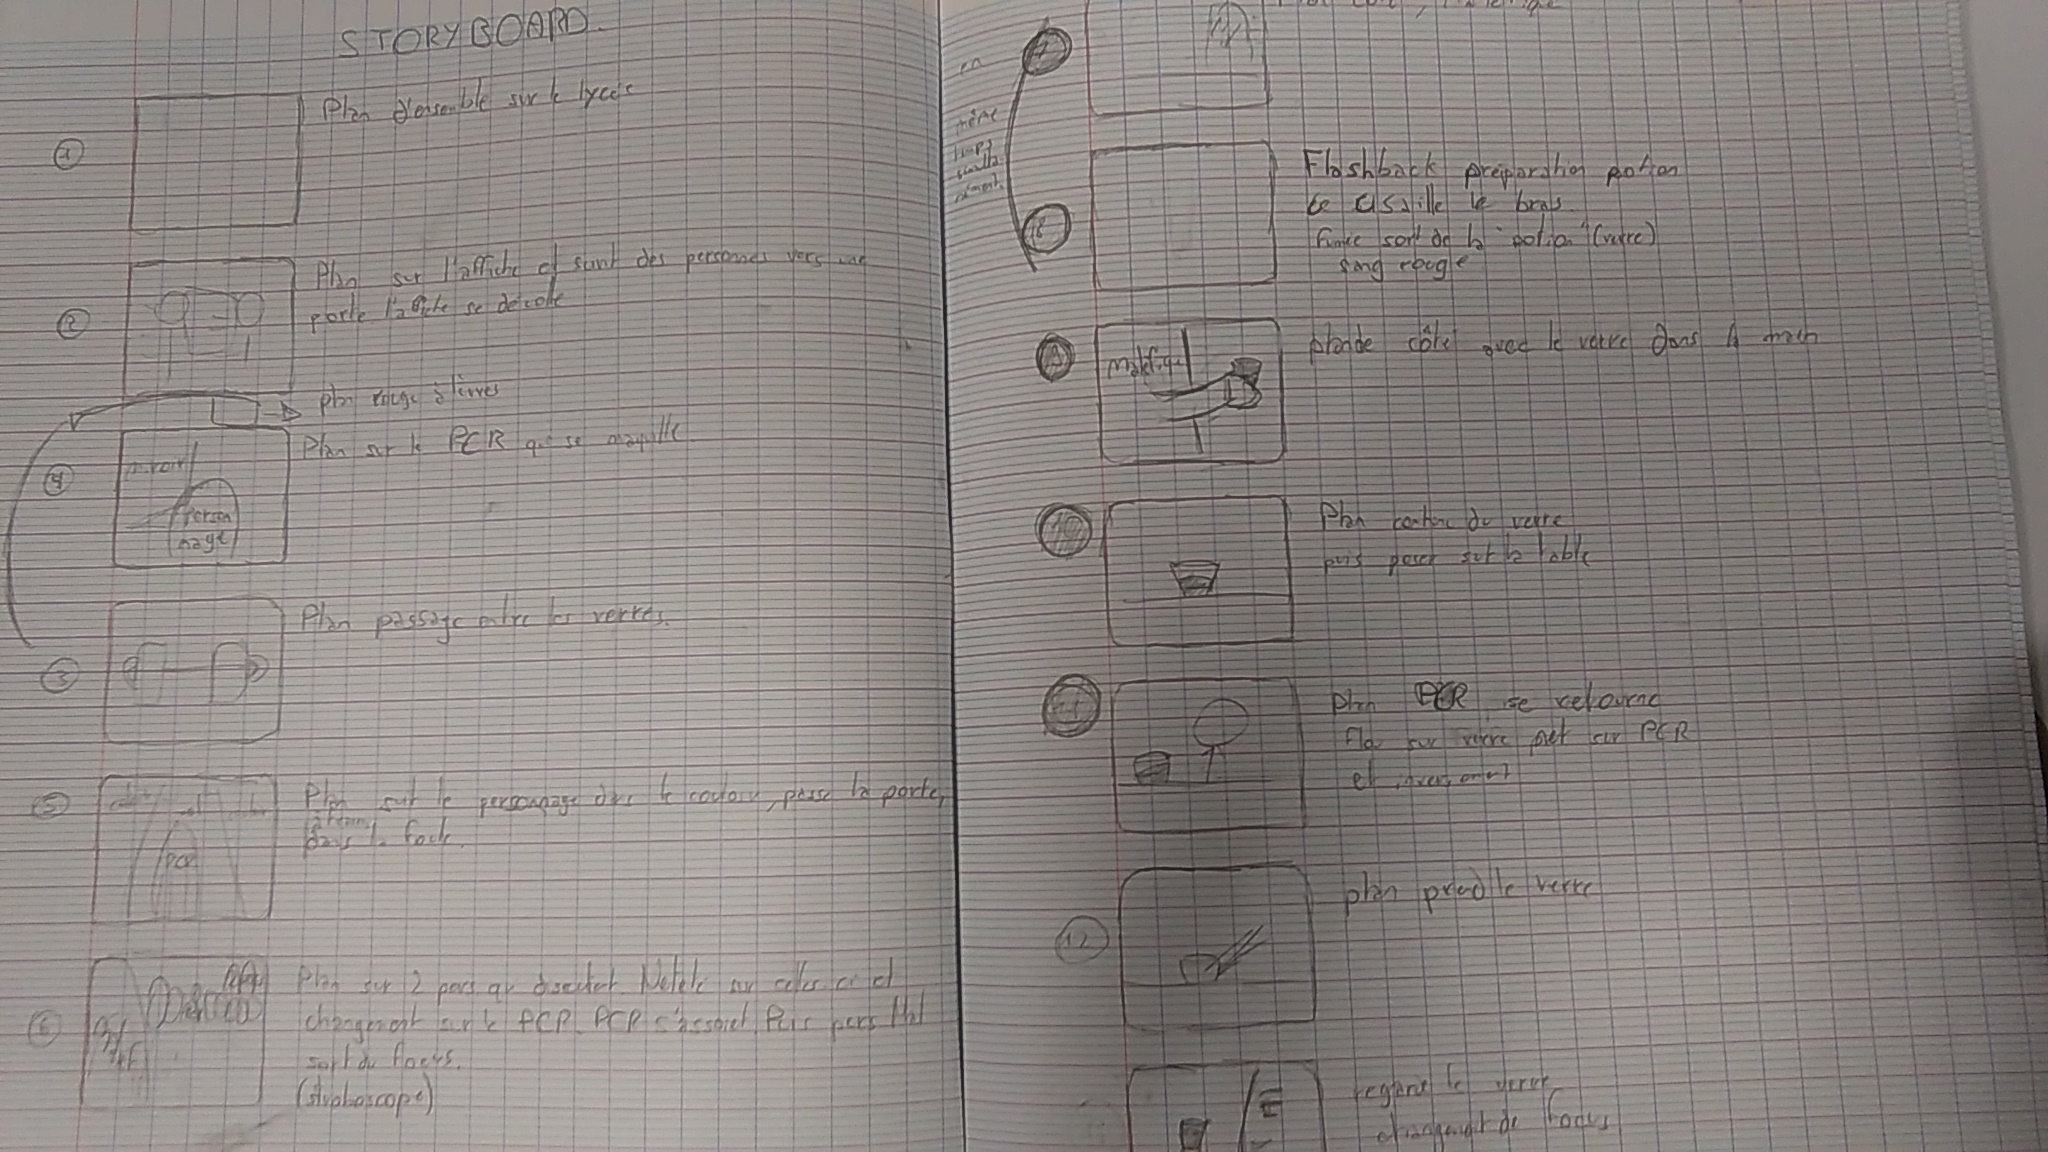 STORYBOARD
1
Plan d'ensemble sur le lycée
2
Plan sur l'affiche et suint des personnes vers une
porte l'affiche se décolle
plan rouge à lèvres
4
miroir
Person
nage
Plan sur le PCR qui se maquille
3
Plan passage entre les verres.
5
PCR
Plan suit le personnage dans le couloir, passe la porte,
dans la foule.
6
Plan sur 2 pers qui discutent. Netteté sur celles ci et
changement sur le PCR. PCR s'assoiet Puis pers Mal
sort du focus.
(stroboscope)
en
même
temps
7
8
Flashback préparation potion
se cisaille le bras
fumée sort de la "potion" (verre)
sang rouge
9
maléfique
plan de côté avec le verre dans la main
10
Plan contenu du verre
puis poser sur la table
11
Plan PCR se retourne
Flou sur verre net sur PCR
et inversement
12
plan prend le verre
regarde le verre
changement de focus